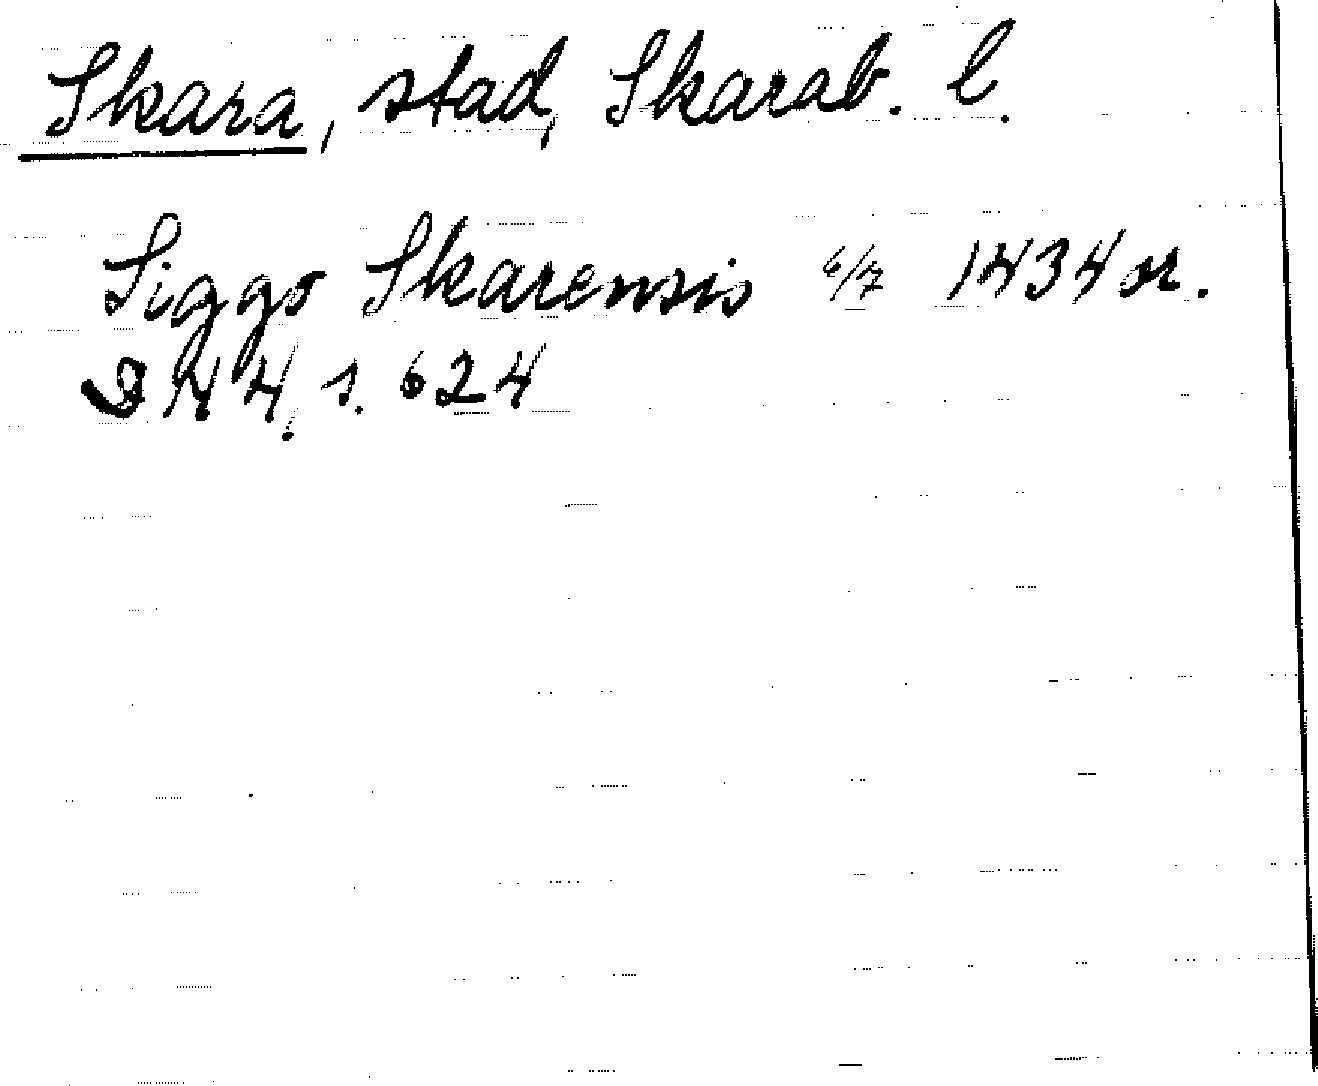 Skara, stad, Skarab. l.
Siggo Skarensis 6/7 1434 or.
SHH, s. 624